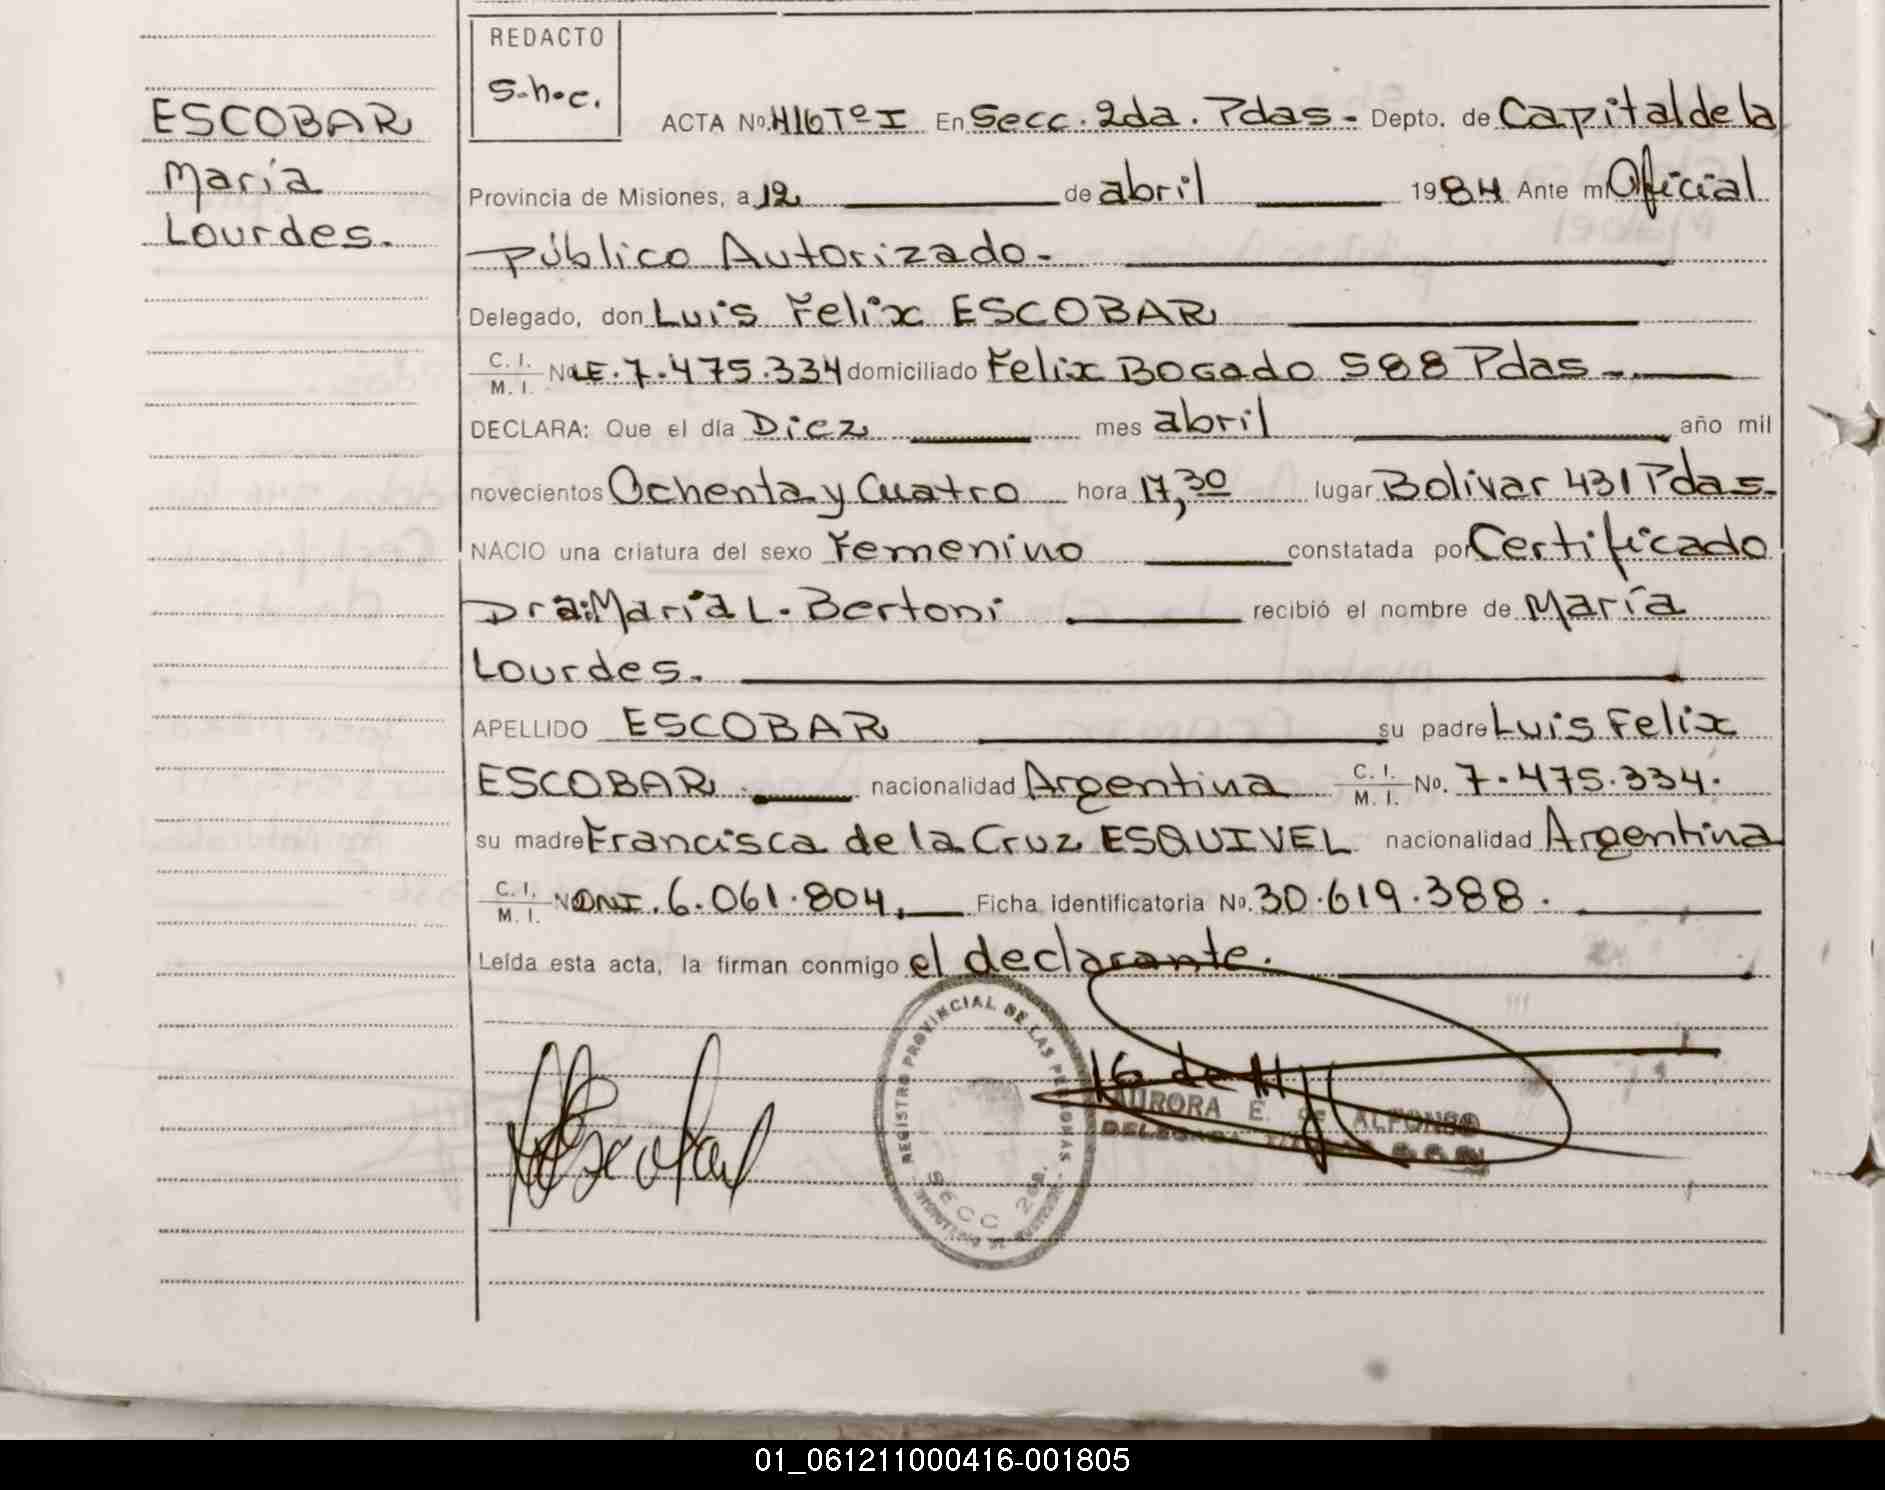 REDACTO
S.h.c.
ESCOBAR
María
Lourdes.
ACTA No. 416 Tº I En Secc. 2da. Pdas. - Depto. de Capital de la
Provincia de Misiones, a 12 de abril 1984 Ante mí Oficial
Público Autorizado.
Delegado, don Luis Felix ESCOBAR
C. I. M. I. No. LE. 7.475.334 domiciliado Felix BOGADO 588 Pdas.
DECLARA: Que el día Diez mes abril año mil
novecientos Ochenta y Cuatro hora 17,30 lugar Bolivar 431 Pdas.
NACIO una criatura del sexo Femenino constatada por Certificado
Dra: María L. Bertoni recibió el nombre de María
Lourdes.
APELLIDO ESCOBAR su padre Luis Felix
ESCOBAR nacionalidad Argentina C. I. M. I. No. 7.475.334.
su madre Francisca de la Cruz ESQUIVEL nacionalidad Argentina
C. I. M. I. No. DNI. 6.061.804. Ficha identificatoria No. 30.619.388.
Leída esta acta, la firman conmigo el declarante.
REGISTRO PROVINCIAL DE LAS PERSONAS
SECC 2da.
AURORA E. DE ALFONSO
DELEGADA
01_061211000416-001805